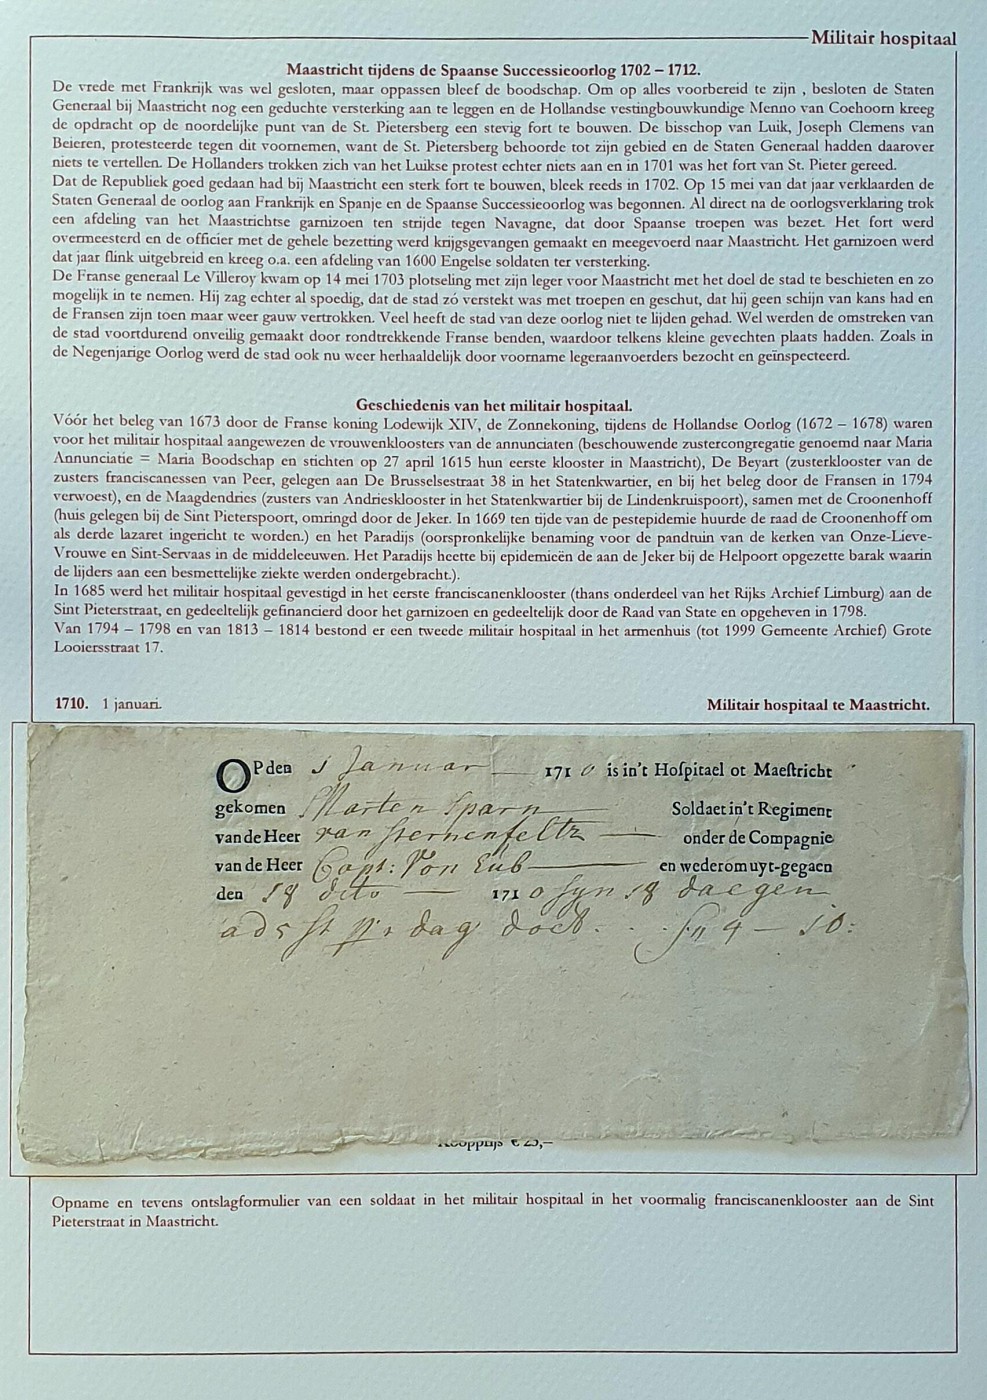 Militair hospitaal
Maastricht tijdens de Spaanse Successieoorlog 1702 – 1712.
De vrede met Frankrijk was wel gesloten, maar oppassen bleef de boodschap. Om op alles voorbereid te zijn , besloten de Staten
Generaal bij Maastricht nog een geduchte versterking aan te leggen en de Hollandse vestingbouwkundige Menno van Coehoorn kreeg
de opdracht op de noordelijke punt van de St. Pietersberg een stevig fort te bouwen. De bisschop van Luik, Joseph Clemens van
Beieren, protesteerde tegen dit voornemen, want de St. Pietersberg behoorde tot zijn gebied en de Staten Generaal hadden daarover
niets te vertellen. De Hollanders trokken zich van het Luikse protest echter niets aan en in 1701 was het fort van St. Pieter gereed.
Dat de Republiek goed gedaan had bij Maastricht een sterk fort te bouwen, bleek reeds in 1702. Op 15 mei van dat jaar verklaarden de
Staten Generaal de oorlog aan Frankrijk en Spanje en de Spaanse Successieoorlog was begonnen. Al direct na de oorlogsverklaring trok
een afdeling van het Maastrichtse garnizoen ten strijde tegen Navagne, dat door Spaanse troepen was bezet. Het fort werd
overmeesterd en de officier met de gehele bezetting werd krijgsgevangen gemaakt en meegevoerd naar Maastricht. Het garnizoen werd
dat jaar flink uitgebreid en kreeg o.a. een afdeling van 1600 Engelse soldaten ter versterking.
De Franse generaal Le Villeroy kwam op 14 mei 1703 plotseling met zijn leger voor Maastricht met het doel de stad te beschieten en zo
mogelijk in te nemen. Hij zag echter al spoedig, dat de stad zó verstekt was met troepen en geschut, dat hij geen schijn van kans had en
de Fransen zijn toen maar weer gauw vertrokken. Veel heeft de stad van deze oorlog niet te lijden gehad. Wel werden de omstreken van
de stad voortdurend onveilig gemaakt door rondtrekkende Franse benden, waardoor telkens kleine gevechten plaats hadden. Zoals in
de Negenjarige Oorlog werd de stad ook nu weer herhaaldelijk door voorname legeraanvoerders bezocht en geïnspecteerd.
Geschiedenis van het militair hospitaal.
Vóór het beleg van 1673 door de Franse koning Lodewijk XIV, de Zonnekoning, tijdens de Hollandse Oorlog (1672 – 1678) waren
voor het militair hospitaal aangewezen de vrouwenkloosters van de annunciaten (beschouwende zustercongregatie genoemd naar Maria
Annunciatie = Maria Boodschap en stichten op 27 april 1615 hun eerste klooster in Maastricht), De Beyart (zusterklooster van de
zusters franciscanessen van Peer, gelegen aan De Brusselsestraat 38 in het Statenkwartier, en bij het beleg door de Fransen in 1794
verwoest), en de Maagdendries (zusters van Andriesklooster in het Statenkwartier bij de Lindenkruispoort), samen met de Croonenhoff
(huis gelegen bij de Sint Pieterspoort, omringd door de Jeker. In 1669 ten tijde van de pestepidemie huurde de raad de Croonenhoff om
als derde lazaret ingericht te worden.) en het Paradijs (oorspronkelijke benaming voor de pandtuin van de kerken van Onze-Lieve-
Vrouwe en Sint-Servaas in de middeleeuwen. Het Paradijs heette bij epidemieën de aan de Jeker bij de Helpoort opgezette barak waarin
de lijders aan een besmettelijke ziekte werden ondergebracht.).
In 1685 werd het militair hospitaal gevestigd in het eerste franciscanenklooster (thans onderdeel van het Rijks Archief Limburg) aan de
Sint Pieterstraat, en gedeeltelijk gefinancierd door het garnizoen en gedeeltelijk door de Raad van State en opgeheven in 1798.
Van 1794 – 1798 en van 1813 – 1814 bestond er een tweede militair hospitaal in het armenhuis (tot 1999 Gemeente Archief) Grote
Looiersstraat 17.
1710. 1 januari. Militair hospitaal te Maastricht.
OP den 1 Januar 1710 is in't Hospitael ot Maestricht
gekomen Marten Sparn Soldaet in't Regiment
van de Heer van Sternenfeltz onder de Compagnie
van de Heer Capt: Von Eub en wederom uyt-gegaen
den 18 dito 1710 syn 18 daegen
a 5 st pr dag doet 4 – 10:
Koopprijs € 25,–
Opname en tevens ontslagformulier van een soldaat in het militair hospitaal in het voormalig franciscanenklooster aan de Sint
Pieterstraat in Maastricht.